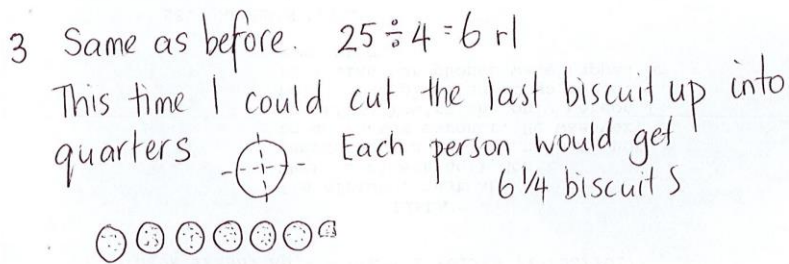 3 Same as before. 25 ÷ 4 = 6 r1
This time I could cut the last biscuit up into
quarters Each person would get
6 1/4 biscuits